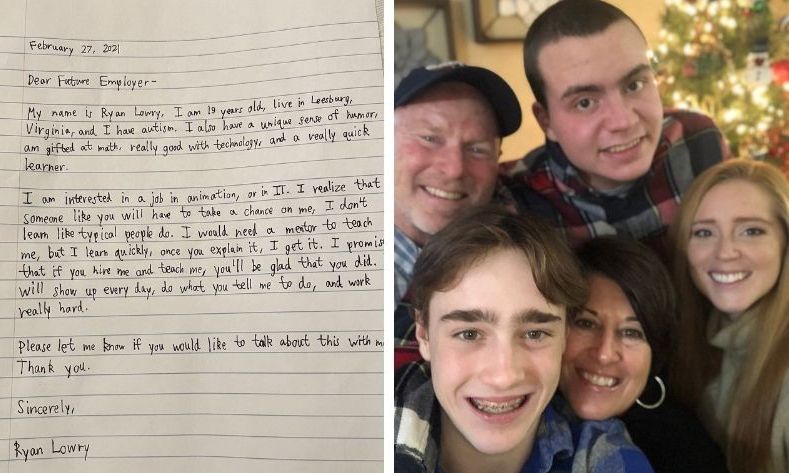 February 27, 2021
Dear Future Employer-
My name is Ryan Lowry, I am 19 years old, live in Leesburg,
Virginia, and I have autism. I also have a unique sense of humor,
am gifted at math, really good with technology, and a really quick
learner.
I am interested in a job in animation, or in IT. I realize that
someone like you will have to take a chance on me, I don't
learn like typical people do. I would need a mentor to teach
me, but I learn quickly, once you explain it, I get it. I promis
that if you hire me and teach me, you'll be glad that you did.
will show up every day, do what you tell me to do, and work
really hard.
Please let me know if you would like to talk about this with m
Thank you.
Sincerely,
Ryan Lowry